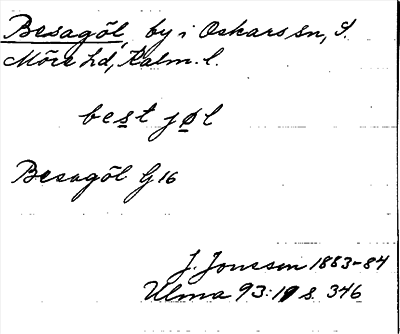 Besagöl, by i Oskars sn, S.
Möre hd, Kalm. l.
best jøl
Besagöl G 16
J. Jonsson 1883-84
Ulma 93:19 s. 346